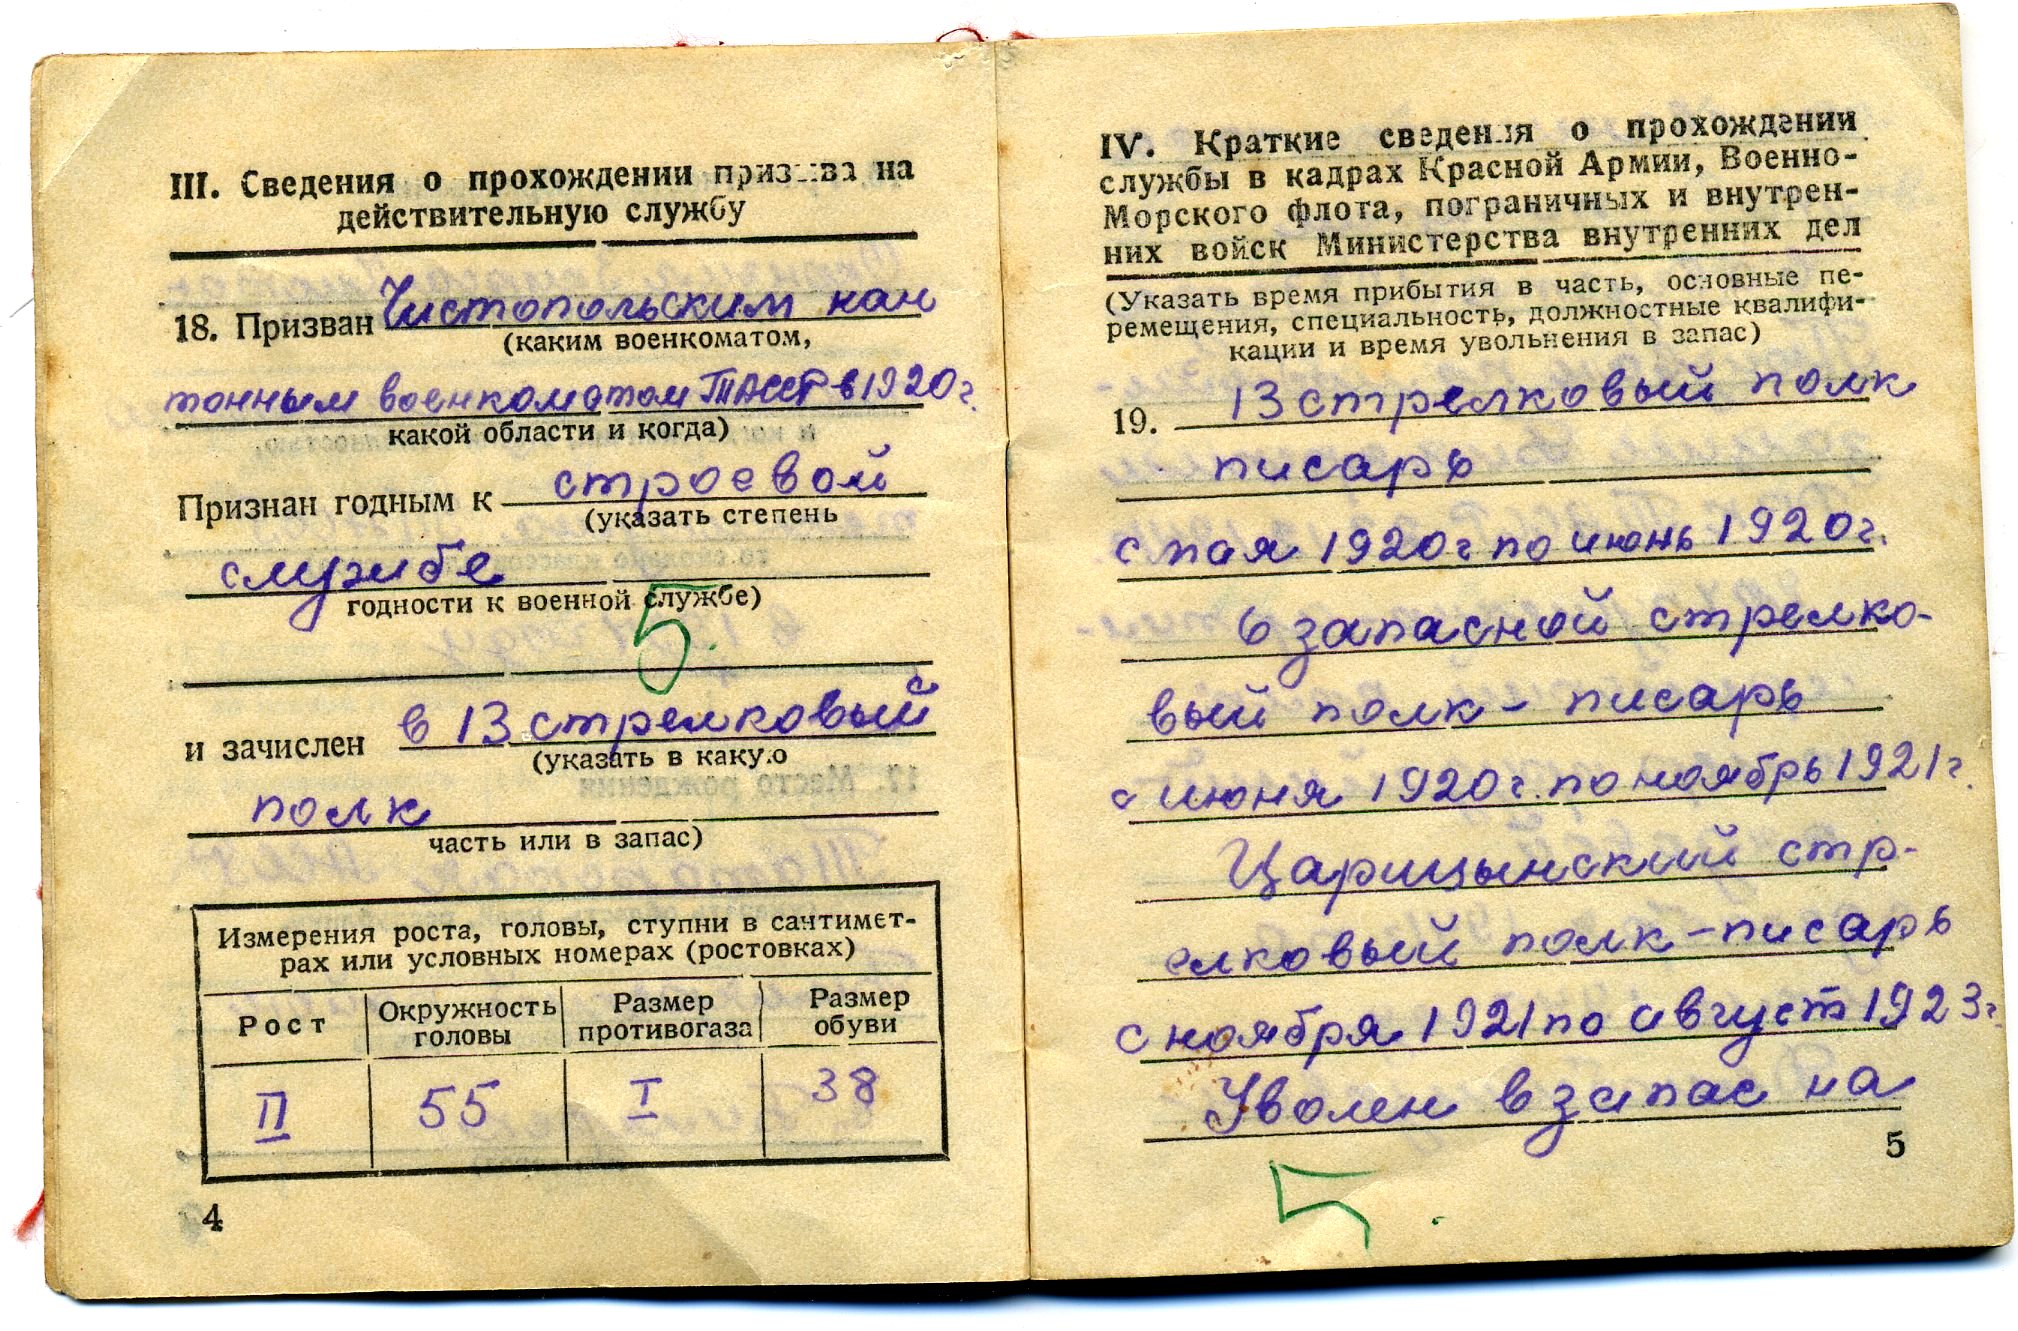 III. Сведения о прохождении призыва на
действительную службу
18. Призван Чистопольским кан
(каким военкоматом,
тонным военкоматом ТАССР в 1920 г.
какой области и когда)
Признан годным к строевой
(указать степень
службе
годности к военной службе)
5.
и зачислен в 13 стрелковый
(указать в какую
полк
часть или в запас)
Измерения роста, головы, ступни в сантимет-
рах или условных номерах (ростовках)
Рост
Окружность
головы
Размер
противогаза
Размер
обуви
II
55
I
38
4
IV. Краткие сведения о прохождении
службы в кадрах Красной Армии, Военно-
Морского флота, пограничных и внутрен-
них войск Министерства внутренних дел
(Указать время прибытия в часть, основные пе-
ремещения, специальность, должностные квалифи-
кации и время увольнения в запас)
19. 13 стрелковый полк
писарь
с мая 1920 г по июнь 1920 г.
6 запасной стрелко-
вый полк - писарь
с июня 1920 г. по ноябрь 1921 г.
Царицынский стр-
елковый полк - писарь
с ноября 1921 по август 1923 г.
Уволен в запас на
5
5.